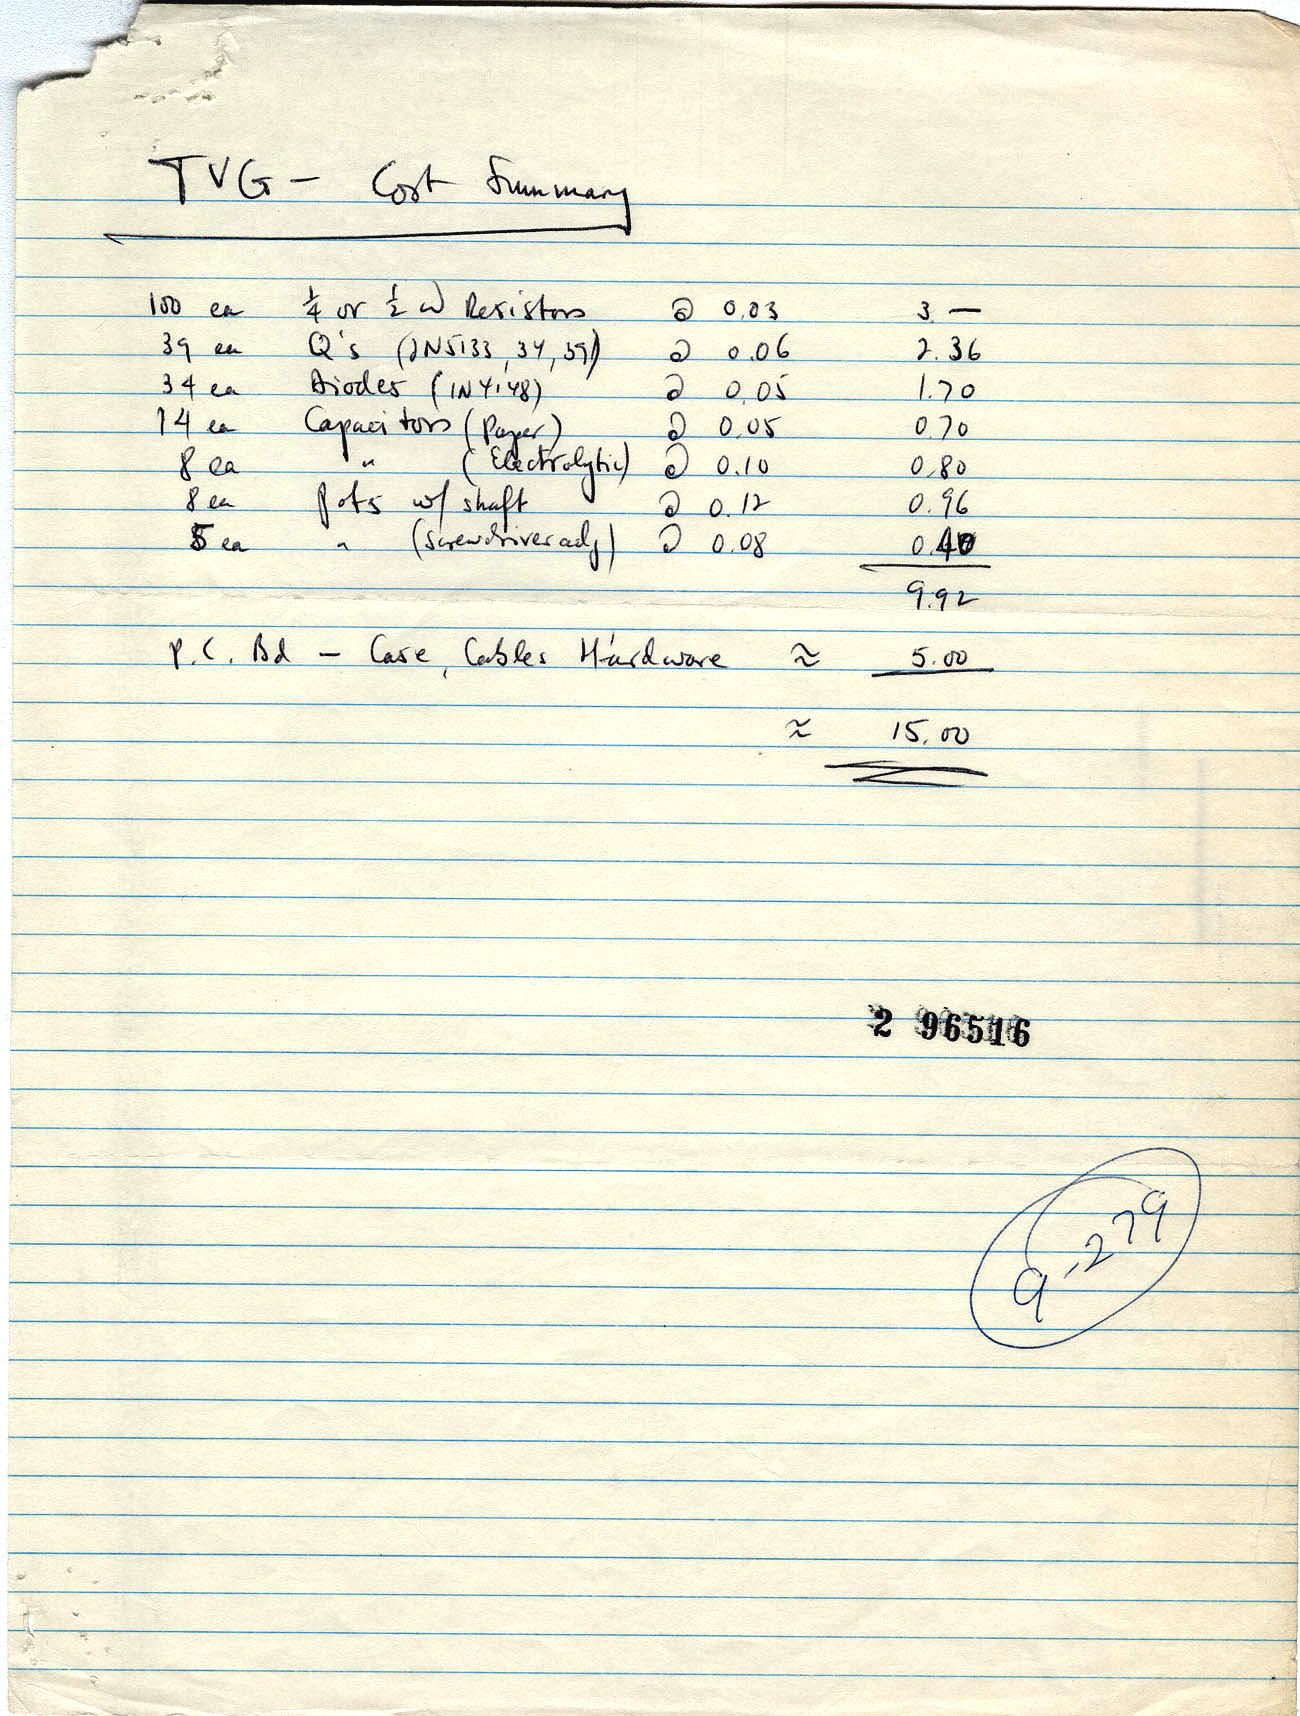 TVG - Cost Summary
100 ea ¼ or ½ w Resistors @ 0.03 3.—
39 ea Q's (2N5133, 34, 39) @ 0.06 2.36
34 ea Diodes (1N4148) @ 0.05 1.70
14 ea Capacitors (Paper) @ 0.05 0.70
8 ea " (Electrolytic) @ 0.10 0.80
8 ea Pots w/ shaft @ 0.12 0.96
5 ea " (Screwdriver adj) @ 0.08 0.40
9.92
P.C. Bd - Case, Cables Hardware ≈ 5.00
≈ 15.00
2 96516
9-279